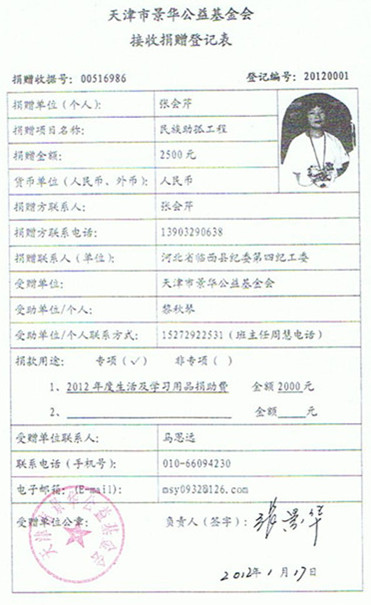 天津市景华公益基金会
接收捐赠登记表
捐赠收据号: 00516986 登记编号: 20120001
捐赠单位(个人): 张会芹
捐赠项目名称: 民族助孤工程
捐赠金额: 2500元
货币单位(人民币、外币): 人民币
捐赠方联系人: 张会芹
捐赠方联系电话: 13903290638
捐赠联系人(单位): 河北省临西县纪委第四纪工委
受赠单位: 天津市景华公益基金会
受助单位/个人: 黎秋琴
受助单位/个人联系方式: 15272922531(班主任周慧电话)
捐款用途: 专项(√) 非专项( )
1、2012年度生活及学习用品捐助费 金额2000元
2、 金额 元
受赠单位联系人: 马恩远
联系电话(手机号): 010-66094230
电子邮箱:(E-mail): msy0932@126.com
受赠单位公章: 负责人(签字): 张景华
天津市景华公益基金会
2012年1月17日